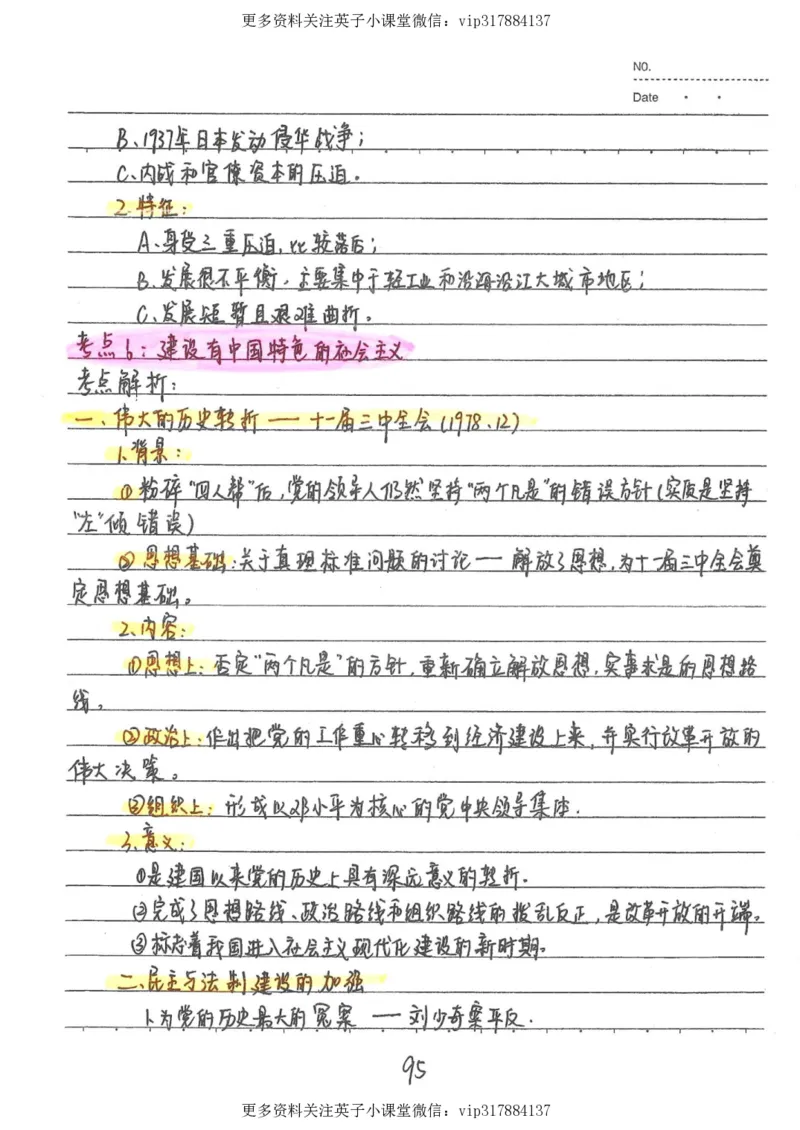 更多资料关注英子小课堂微信：vip317884137
NO.
Date · ·
B、1937年日本发动侵华战争；
C、内战和官僚资本的压迫。
2.特征：
A、身受三重压迫，比较落后；
B、发展很不平衡，主要集中于轻工业和沿海沿江大城市地区；
C、发展短暂且艰难曲折。
考点6：建设有中国特色的社会主义
考点解析：
一、伟大的历史转折——十一届三中全会(1978、12)
1.背景：
①粉碎“四人帮”后，党的领导人仍然坚持“两个凡是”的错误方针(实质是坚持
“左”倾错误)
②思想基础：关于真理标准问题的讨论——解放了思想，为十一届三中全会奠
定思想基础。
2、内容：
①思想上：否定“两个凡是”的方针，重新确立解放思想，实事求是的思想路
线。
②政治上：作出把党的工作重心转移到经济建设上来，并实行改革开放的
伟大决策。
③组织上：形成以邓小平为核心的党中央领导集体.
3、意义：
①是建国以来党的历史上具有深远意义的转折.
②完成了思想路线、政治路线和组织路线的拨乱反正，是改革开放的开端。
③标志着我国进入社会主义现代化建设的新时期。
二、民主与法制建设的加强
1、为党的历史最大的冤案——刘少奇案平反.
95
更多资料关注英子小课堂微信：vip317884137